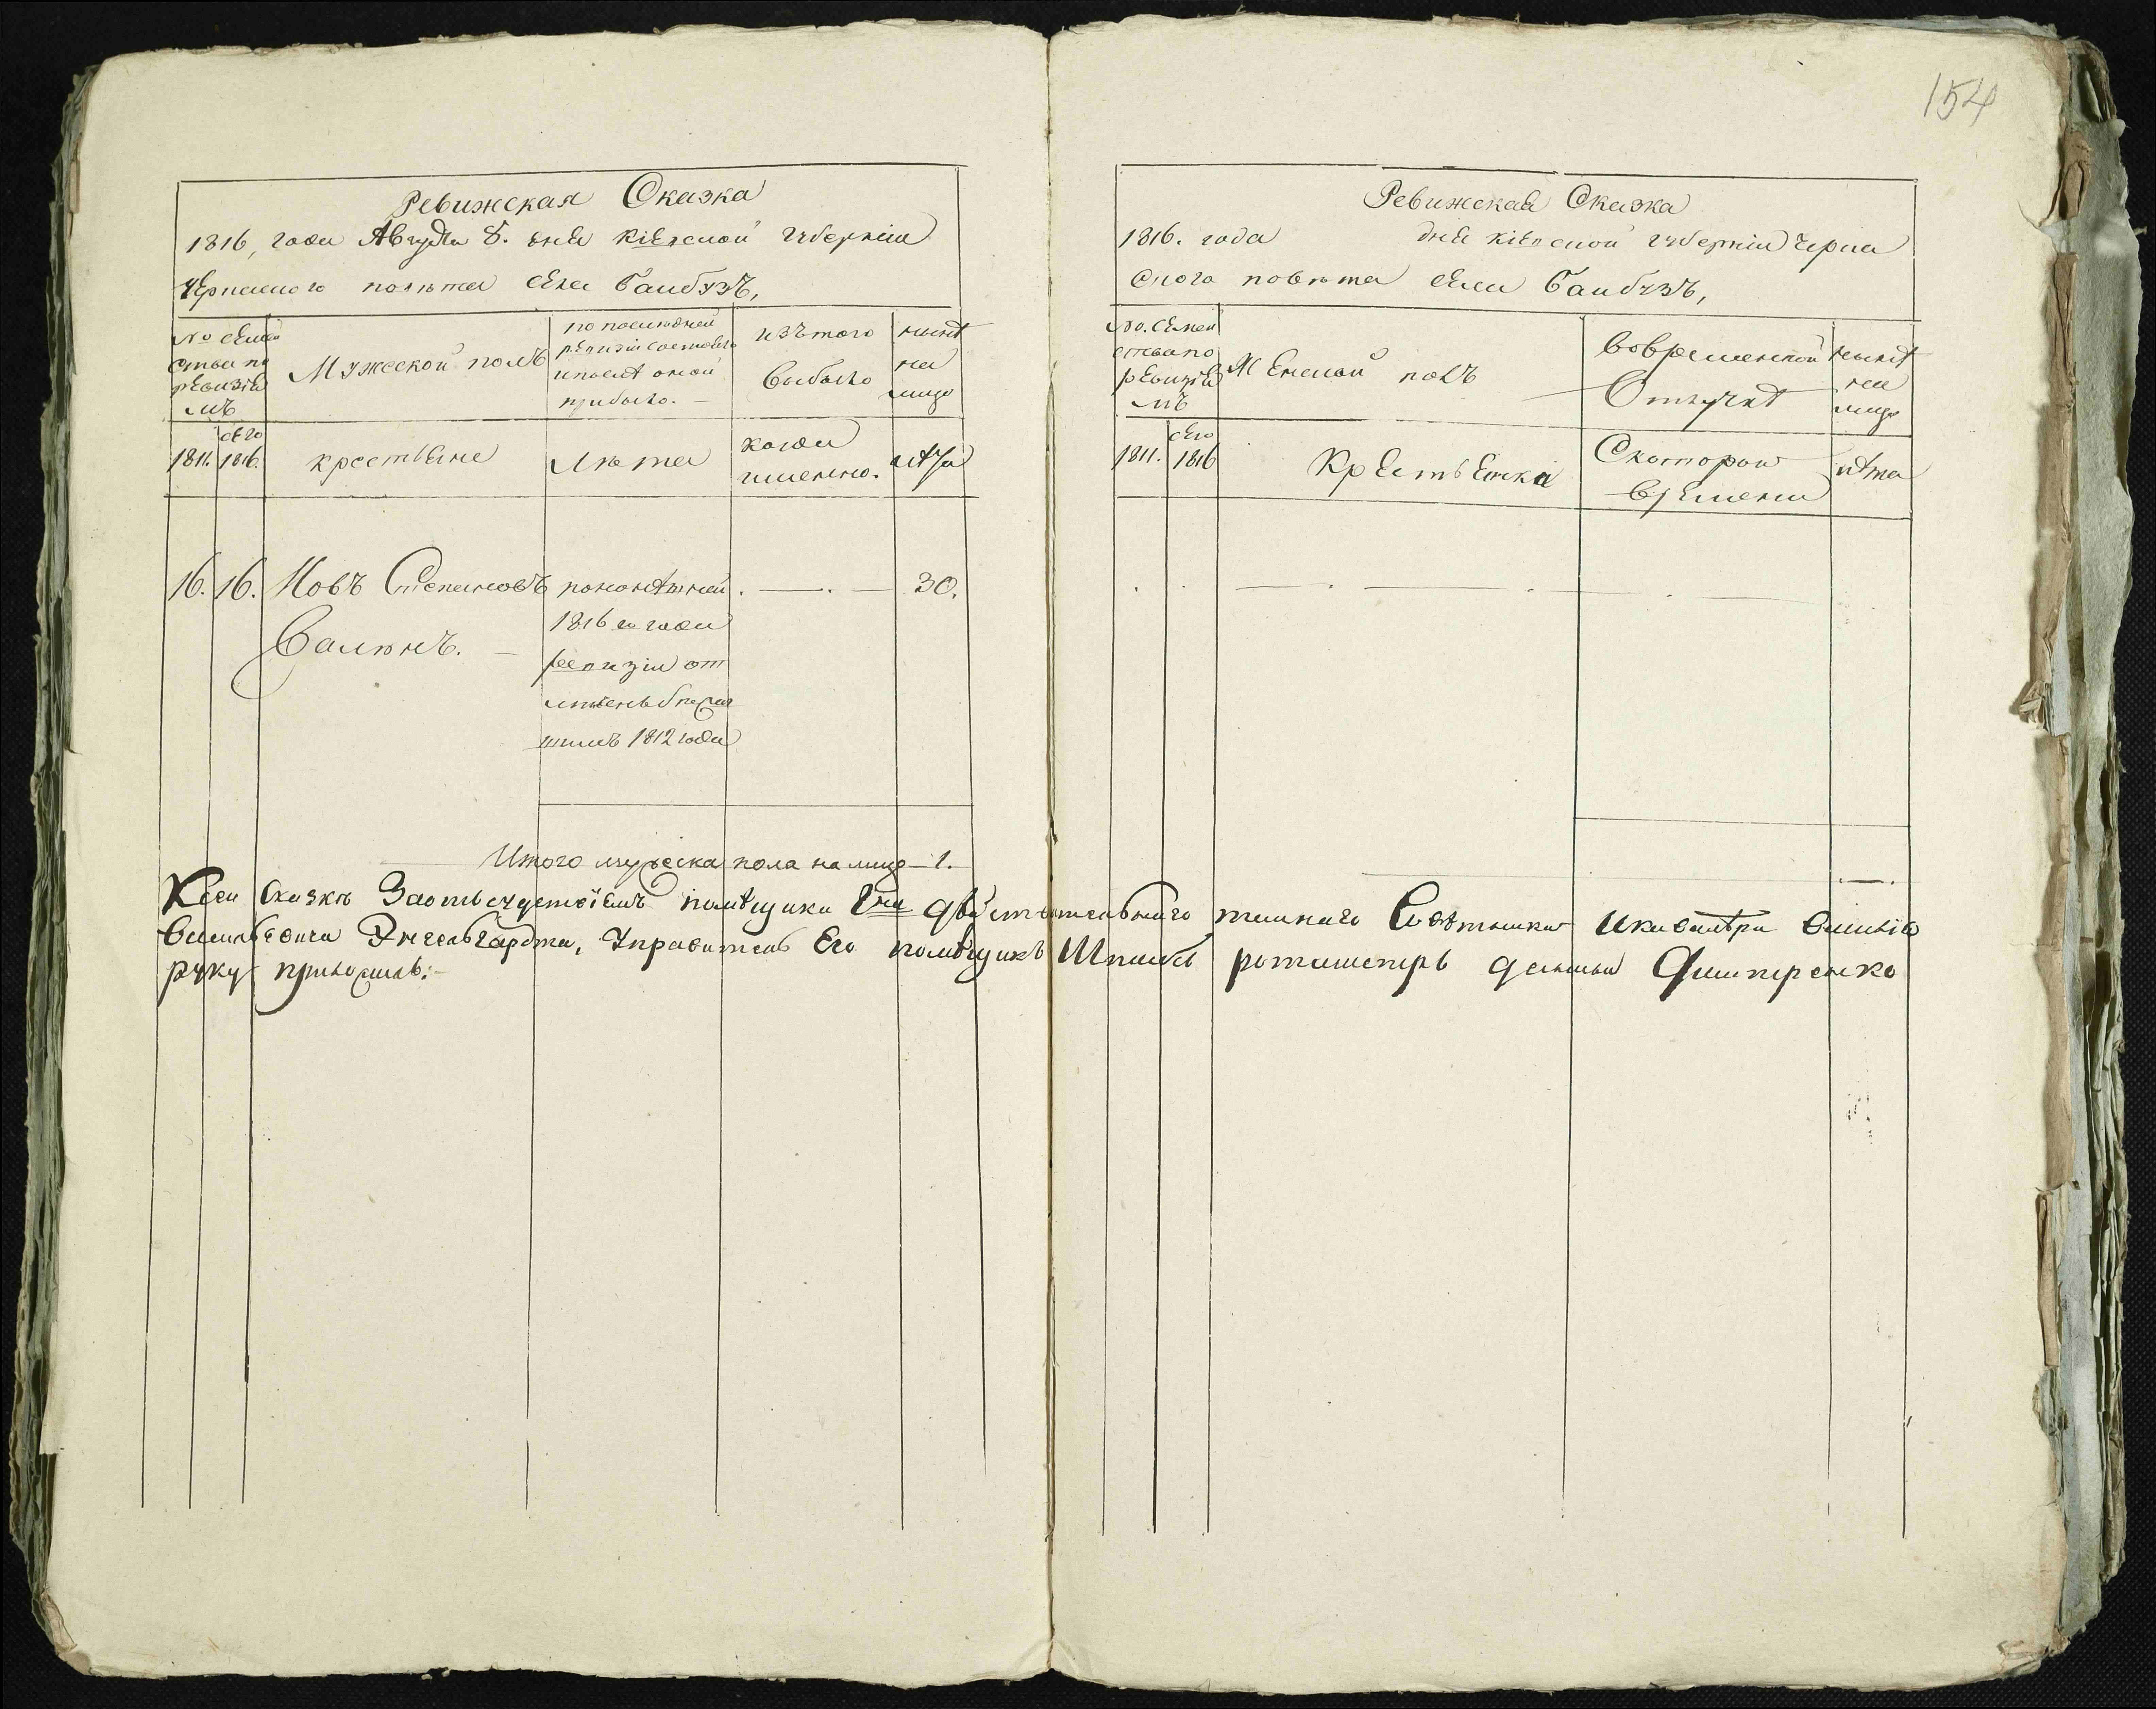 154
Ревижская Сказка
1816, года Августа 8. дня Кіевской губерніи
Черкаского повѣта села Баибузъ,
№ семей
ства по
ревизіи
мъ
Мужеской полъ
по последней
ревизіи состояло
и после оной
прибыло.
изъ того
выбыло
нынѣ
на
лицо
1811.
сего
1816.
крестьяне
Лѣта
когда
именно.
лѣта
16. 16. Іовъ Степановъ
Валюнъ.
1816 го года
ревизіи от
1812 года
30.
Итого мужеска пола на лицо – 1.
Ревижская Сказка
1816. года дня Кіевской губерніи Черка
ского повѣта села Баибузъ,
№. семей
ства по
ревизіи
мъ
Женской полъ
Во временной
Отлучкѣ
нынѣ
на
лицо
1811.
сего
1816
Крестьенки
С котораго
времени
лѣта
К сей сказкѣ За отъсуцтвіемъ помѣщика Гна Дѣйствительнаго тайнаго Совѣтника и кавалера Василія
Василъевича Энгельгардта, Управитель Его помѣщикъ Штабсъ ротмистръ Дмитренко
руку приложилъ: